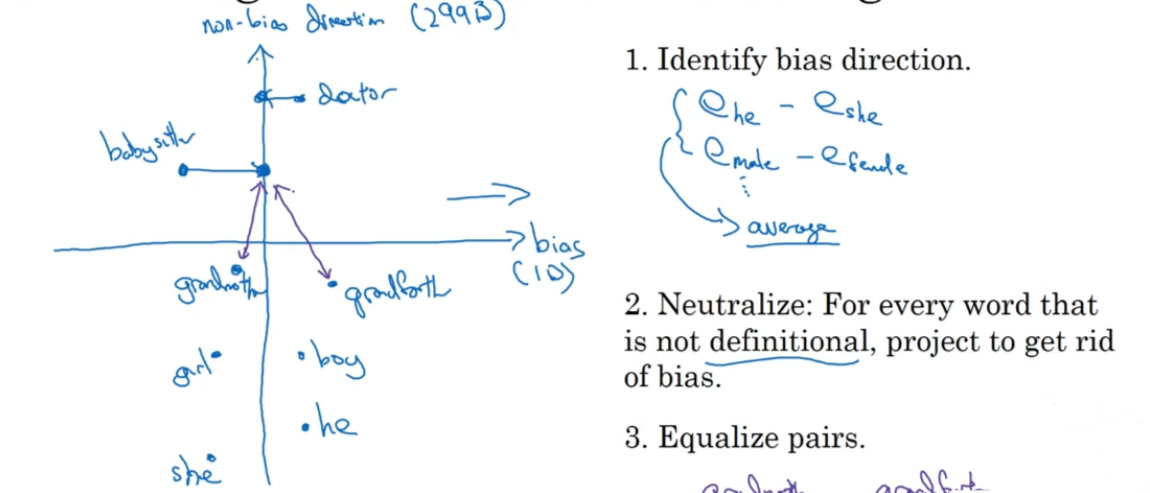 non-bias direction (299D)
doctor
babysitter
bias
(1D)
grandmother
grandfather
girl
boy
he
she
1. Identify bias direction.
e he - e she
e male - e female
⋮
average
2. Neutralize: For every word that
is not definitional, project to get rid
of bias.
3. Equalize pairs.